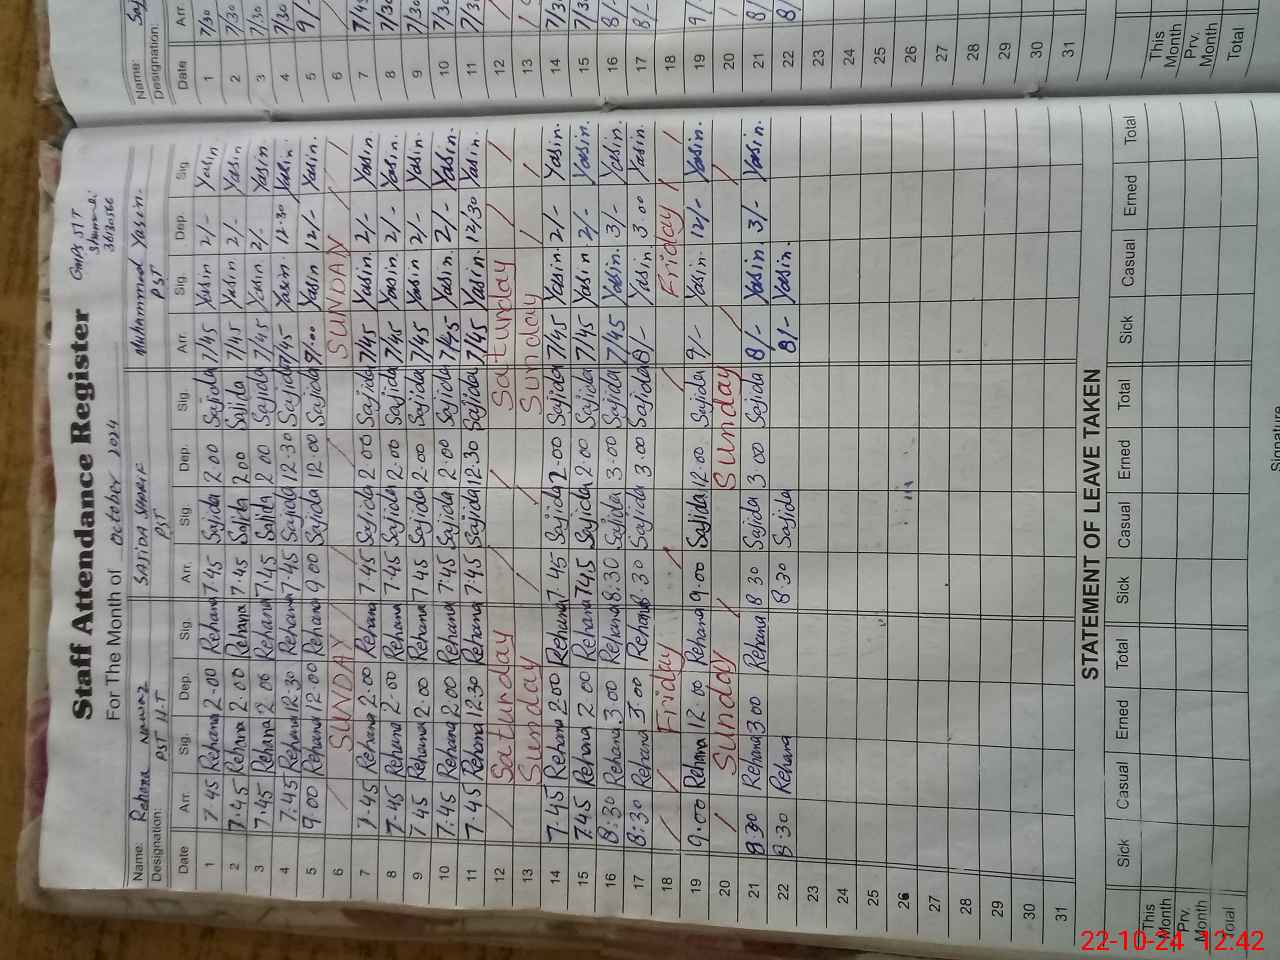 Staff Attendance Register
For The Month of October 2024
Name: Rehana Nawaz SAJIDA SHARIF Muhammad Yasin.
Designation: PST H.T PST PST
Date Arr. Sig. Dep. Sig. Arr. Sig. Dep. Sig. Arr. Sig. Dep. Sig.
1 7.45 Rehana 2.00 Rehana 7.45 Sajida 2.00 Sajida 7/45 Yasin 2/- Yasin
2 7.45 Rehana 2.00 Rehana 7.45 Sajida 2.00 Sajida 7/45 Yasin 2/- Yasin
3 7.45 Rehana 2.00 Rehana 7.45 Sajida 2.00 Sajida 7/45 Yasin 2/- Yasin.
4 7.45 Rehana 12.30 Rehana 7.45 Sajida 12.30 Sajida 7/45 Yasin. 12.30 Yasin.
5 9.00 Rehana 12.00 Rehana 9.00 Sajida 12.00 Sajida 9/.00 Yasin 12/- Yasin.
6 SUNDAY SUNDAY
7 7.45 Rehana 2.00 Rehana 7.45 Sajida 2.00 Sajida 7/45 Yasin. 2/- Yasin.
8 7.45 Rehana 2.00 Rehana 7.45 Sajida 2.00 Sajida 7/45 Yasin. 2/- Yasin.
9 7.45 Rehana 2.00 Rehana 7.45 Sajida 2.00 Sajida 7/45 Yasin. 2/- Yasin.
10 7.45 Rehana 2.00 Rehana 7.45 Sajida 2.00 Sajida 7/45 Yasin. 2/- Yasin.
11 7.45 Rehana 12.30 Rehana 7.45 Sajida 12.30 Sajida 7/45 Yasin. 12/30 Yasin.
12 Saturday Saturday Saturday
13 Sunday Sunday Sunday
14 7.45 Rehana 2.00 Rehana 7.45 Sajida 2.00 Sajida 7/45 Yasin. 2/- Yasin.
15 7.45 Rehana 2.00 Rehana 7.45 Sajida 2.00 Sajida 7/45 Yasin 2/- Yasin.
16 8:30 Rehana 3.00 Rehana 8:30 Sajida 3.00 Sajida 7/45 Yasin. 3/- Yasin.
17 8:30 Rehana 3.00 Rehana 8.30 Sajida 3.00 Sajida 8/- Yasin 3.00 Yasin.
18 Friday Friday
19 9.00 Rehana 12.00 Rehana 9.00 Sajida 12.00 Sajida 9/- Yasin. 12/- Yasin.
20 Sunday Sunday
21 8.30 Rehana 3.00 Rehana 8.30 Sajida 3.00 Sajida 8/- Yasin 3/- Yasin.
22 8.30 Rehana 8.30 Sajida 8/- Yasin.
23
24
25
26
27
28
29
30
31
STATEMENT OF LEAVE TAKEN
Sick Casual Erned Total Sick Casual Erned Total Sick Casual Erned Total
This Month
Prv. Month
Total
Name:
Designation:
Date Arr.
1 7/30
2 7/30
3 7/30
4 7/30
5 9/-
6
7
8
9
10
11
12
13
14
15
16 8/-
17 8/-
18
19 9/-
20
21 8/
22 8/
23
24
25
26
27
28
29
30
31
This Month
Prv. Month
Total
Signature
22-10-24 12:42